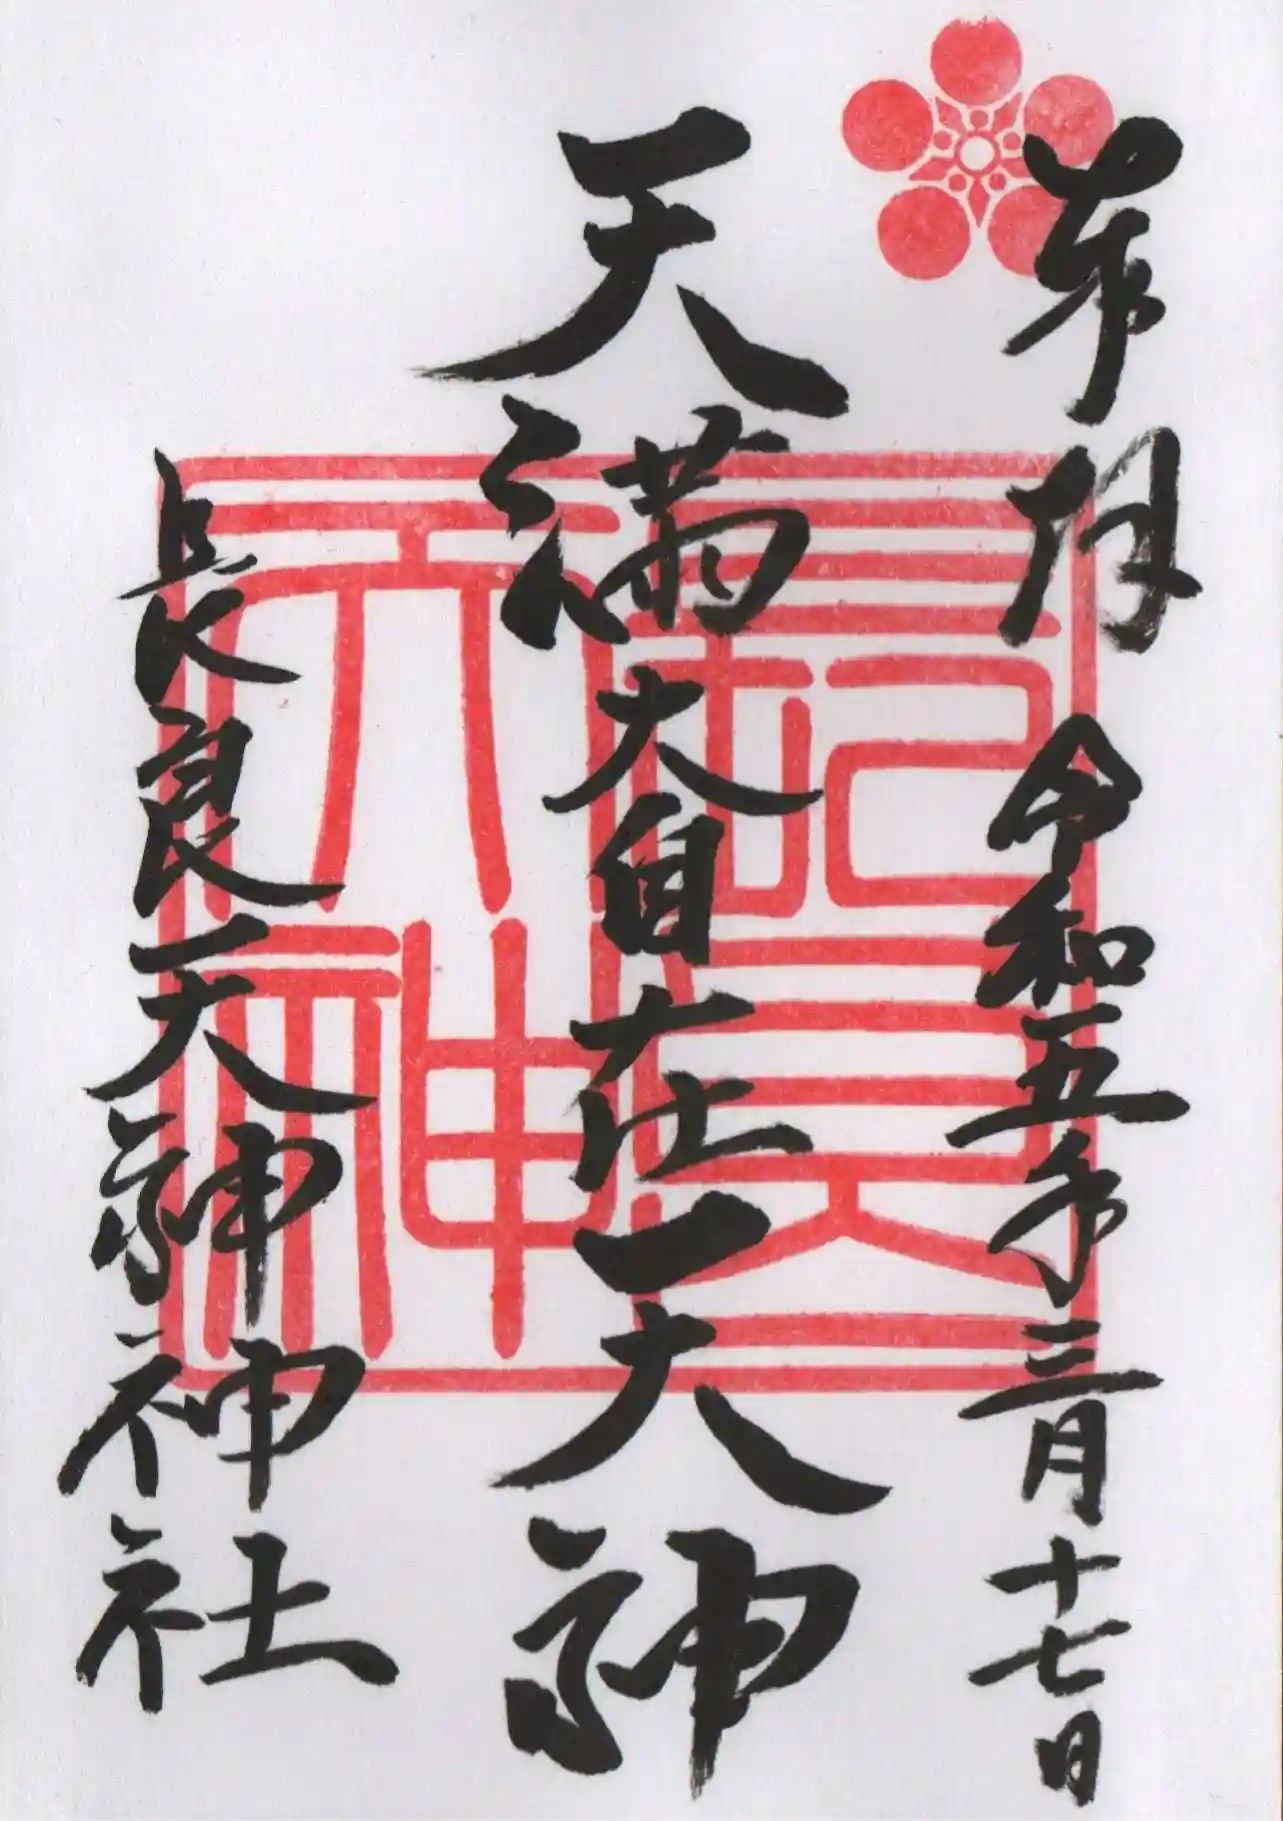 奉拝 令和五年三月十七日
天満大自在天神
長良天神神社
長良天神